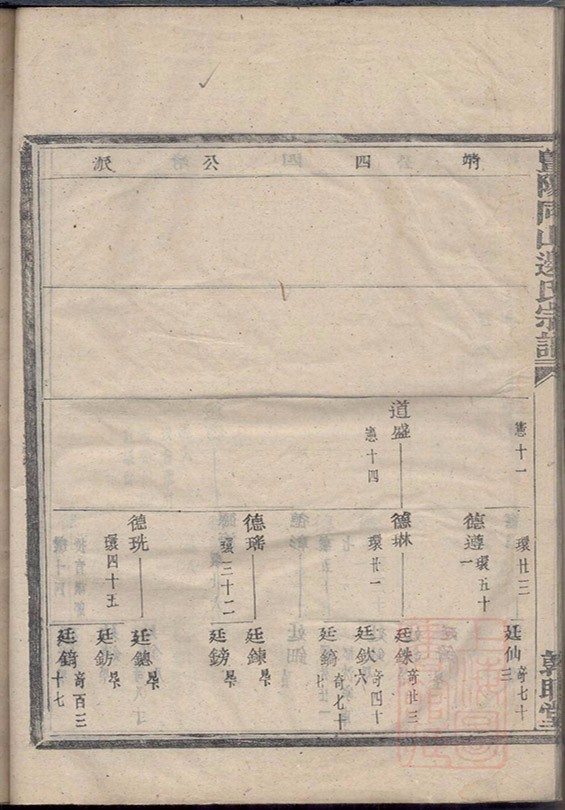 暨陽同山邊氏宗譜
敦睦堂
靖四公派
憲十一
道盛
憲十四
環廿三
德遵
環五十
德琳
環廿一
德瑤
環三十二
德珖
環四十五
廷仙
奇七十三
廷銖
奇廿三
廷欽
奇四十六
廷鏑
奇七十
廷鍊
廷鎊
廷鐩
廷鈁
廷錡
奇百三十七